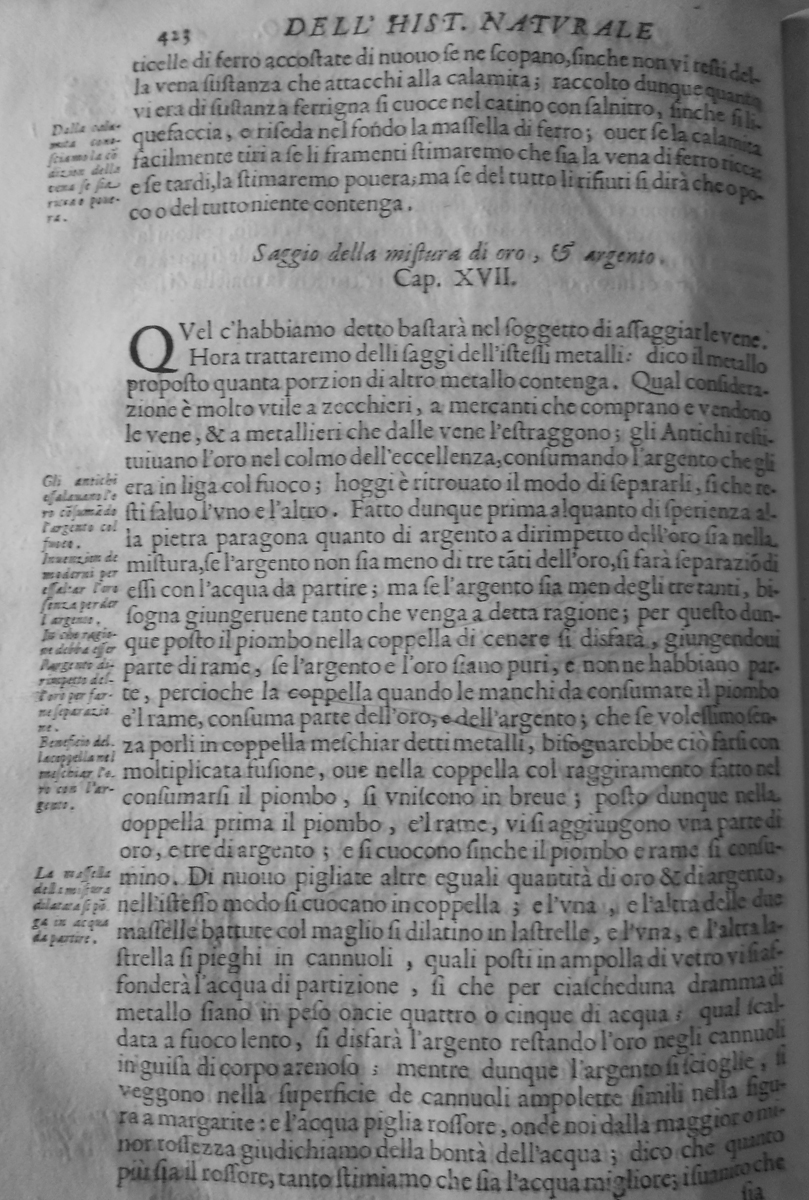 423 DELL' HIST. NATVRALE
ticelle di ferro accoſtate di nuouo ſe ne ſcopano, ſinche non vi reſti del-
la vena ſuſtanza che attacchi alla calamita; raccolto dunque quanta
vi era di ſuſtanza ferrigna ſi cuoce nel catino con ſalnitro, finche ſi li-
quefaccia, e riſeda nel fondo la maſſella di ferro; ouer ſe la calamita
facilmente tiri a ſe li framenti ſtimaremo che ſia la vena di ferro ricca;
e ſe tardi, la ſtimaremo pouera; ma ſe del tutto li rifiuti ſi dirà che o po-
co o del tutto niente contenga.
Dalla cala-
mita cono-
ſciamo la cõ
dizion della
vena ſe ſia
ricca o poue-
ra.
Saggio della miſtura di oro, & argento.
Cap. XVII.
QVel c'habbiamo detto baſtarà nel ſoggetto di aſſaggiar le vene.
Hora trattaremo delli ſaggi dell'iſteſſi metalli: dico il metallo
propoſto quanta porzion di altro metallo contenga. Qual conſidera-
zione è molto vtile a zecchieri, a mercanti che comprano e vendono
le vene, & a metallieri che dalle vene l'eſtraggono; gli Antichi reſti-
tuiuano l'oro nel colmo dell'eccellenza, conſumando l'argento che gli
era in liga col fuoco; hoggi è ritrouato il modo di ſepararli, ſi che re-
ſti ſaluo l'vno e l'altro. Fatto dunque prima alquanto di ſperienza al-
la pietra paragona quanto di argento a dirimpetto dell'oro ſia nella
miſtura, ſe l'argento non ſia meno di tre tãti dell'oro, ſi farà ſeparaziõ di
eſſi con l'acqua da partire; ma ſe l'argento ſia men degli tre tanti, bi-
ſogna giungeruene tanto che venga a detta ragione; per queſto dun-
que poſto il piombo nella coppella di cenere ſi disfarà, giungendoui
parte di rame, ſe l'argento e l'oro ſiano puri, e non ne habbiano par-
te, percioche la coppella quando le manchi da conſumare il piombo
e'l rame, conſuma parte dell'oro, e dell'argento; che ſe voleſſimo ſen-
za porli in coppella meſchiar detti metalli, biſognarebbe ciò farſi con
moltiplicata fuſione, oue nella coppella col raggiramento fatto nel
conſumarſi il piombo, ſi vniſcono in breue; poſto dunque nella
coppella prima il piombo, e'l rame, vi ſi aggiungono vna parte di
oro, e tre di argento; e ſi cuocono finche il piombo e rame ſi conſu-
mino. Di nuouo pigliate altre eguali quantità di oro & di argento,
nell'iſteſſo modo ſi cuocano in coppella; e l'vna, e l'altra delle due
maſſelle battute col maglio ſi dilatino in laſtrelle, e l'vna, e l'altra la-
ſtrella ſi pieghi in cannuoli, quali poſti in ampolla di vetro vi ſi aſ-
fonderà l'acqua di partizione, ſi che per ciaſcheduna dramma di
metallo ſiano in peſo oncie quattro o cinque di acqua: qual ſcal-
data a fuoco lento, ſi disfarà l'argento reſtando l'oro negli cannuoli
in guiſa di corpo arenoſo: mentre dunque l'argento ſi ſcioglie, ſi
veggono nella ſuperficie de cannuoli ampolette ſimili nella figu-
ra a margarite: e l'acqua piglia roſſore, onde noi dalla maggior o mi-
nor roſſezza giudichiamo della bontà dell'acqua; dico che quanto
più ſia il roſſore, tanto ſtimiamo che ſia l'acqua migliore; iſuanto che
ſia
Gli antichi
eſſalauano l'o
ro cõſumãdo
l'argento col
fuoco.
Inuenzion de
moderni per
eſſaltar l'oro
ſenza perder
l'argento.
In che ragio-
ne debba eſſer
l'argento di-
rimpetto del-
l'oro per far-
ne ſeparazio
ne.
Beneficio del-
la coppella nel
meſchiar l'o-
ro con l'ar-
gento.
La maſſella
della miſtura
dilatata ſi põ
ga in acqua
da partire.